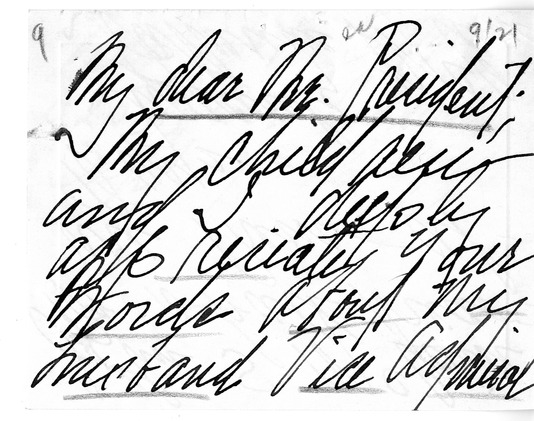 9 9/21
My dear Mr. President:
My children
and I deeply
appreciate your
words about my
husband Vice Admiral